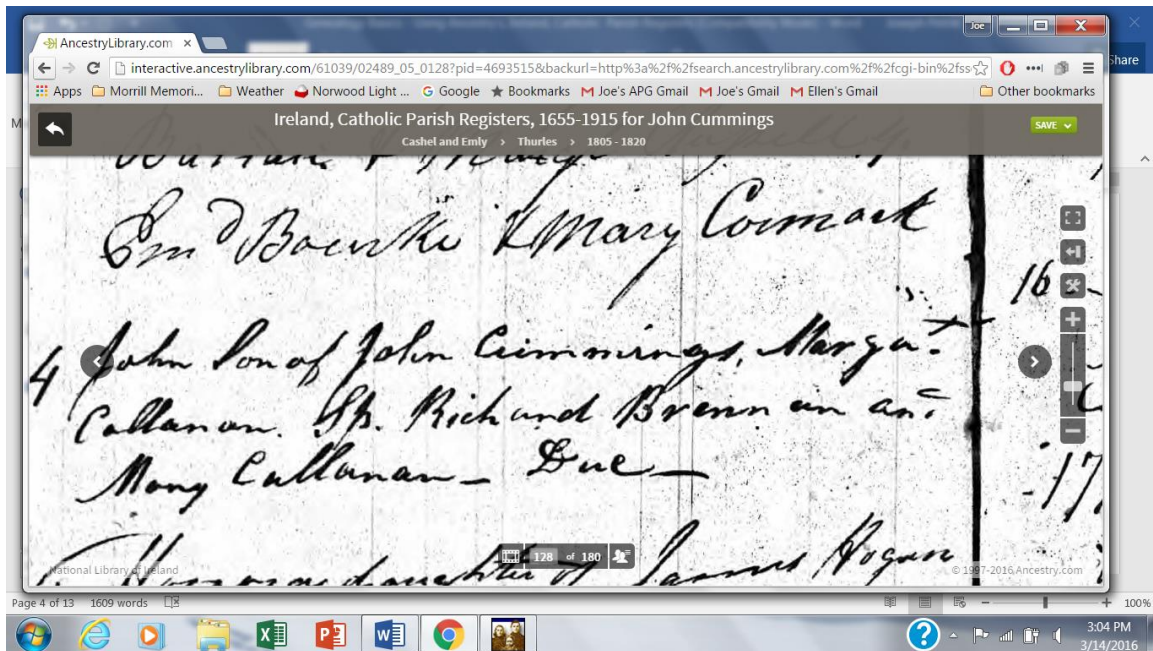 Joe
AncestryLibrary.com ×
interactive.ancestrylibrary.com/61039/02489_05_0128?pid=4693515&backurl=http%3a%2f%2fsearch.ancestrylibrary.com%2f%2fcgi-bin%2fss
Share
Apps Morrill Memori... Weather Norwood Light ... G Google Bookmarks Joe's APG Gmail Joe's Gmail Ellen's Gmail Other bookmarks
Ireland, Catholic Parish Registers, 1655-1915 for John Cummings
SAVE
Cashel and Emly > Thurles > 1805 - 1820
Emd Bourke & Mary Cormack
16
4 John Son of John Cummings, Margat
Callanan. Sp. Richard Brennan and
Mary Callanan - Due -
17
daughter of James Hogan
128 of 180
National Library of Ireland
© 1997-2016 Ancestry.com
Page 4 of 13 1609 words
100%
3:04 PM
3/14/2016